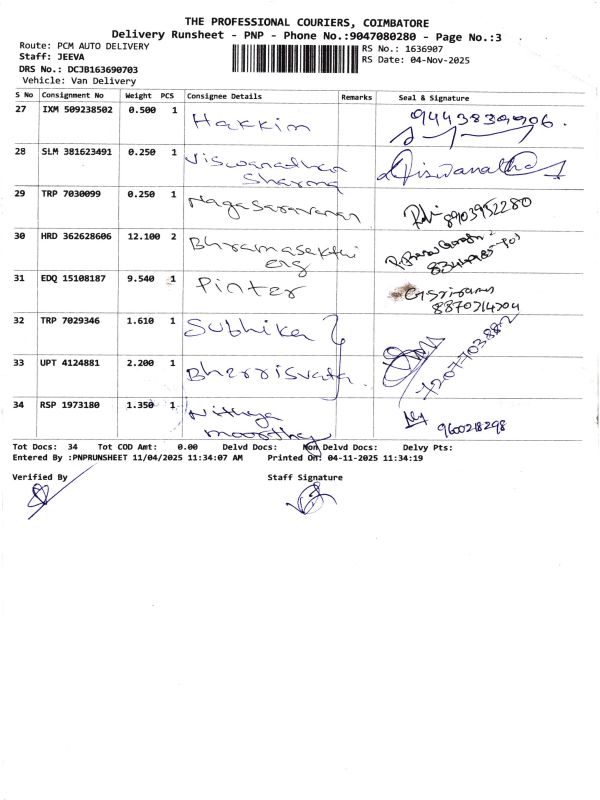 THE PROFESSIONAL COURIERS, COIMBATORE
Delivery Runsheet - PNP - Phone No.:9047080280 - Page No.:3
Route: PCM AUTO DELIVERY
RS No.: 1636907
Staff: JEEVA
RS Date: 04-Nov-2025
DRS No.: DCJB163690703
Vehicle: Van Delivery
S No Consignment No Weight PCS Consignee Details Remarks Seal & Signature
27 IXM 509238502 0.500 1 Hakkim
28 SLM 381623491 0.250 1 Viswanadhan
Sharma
29 TRP 7030099 0.250 1 Nagasaravanan 8903952280
30 HRD 362628606 12.100 2 Bhramasakthi
31 EDQ 15108187 9.540 1 Pinter
8870714704
32 TRP 7029346 1.610 1 Subhika
33 UPT 4124881 2.200 1
34 RSP 1973180 1.350 1 Nithya 9600218298
moorthy
Tot Docs: 34 Tot COD Amt: 0.00 Delvd Docs: Non Delvd Docs: Delvy Pts:
Entered By :PNPRUNSHEET 11/04/2025 11:34:07 AM Printed On: 04-11-2025 11:34:19
Verified By Staff Signature